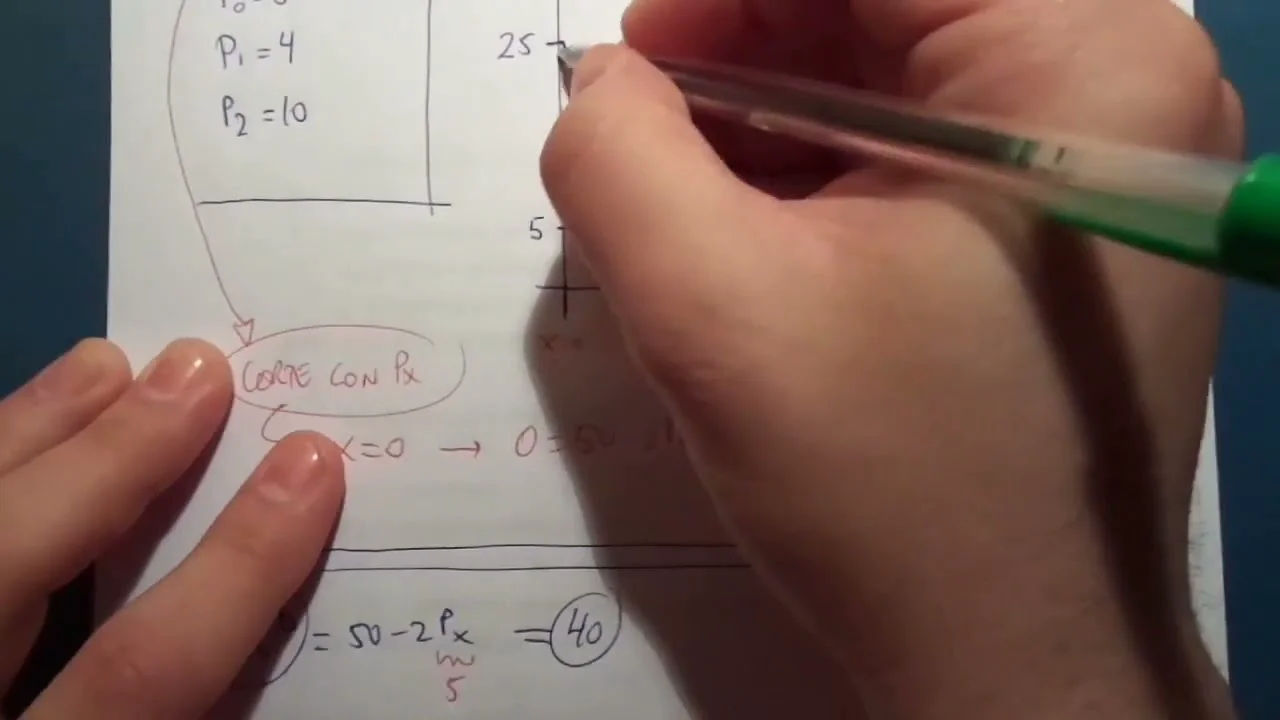 P₁ = 4
25
P₂ = 10
5
CORTE CON Px
x=0 → 0=50
= 50-2Px = 40
5